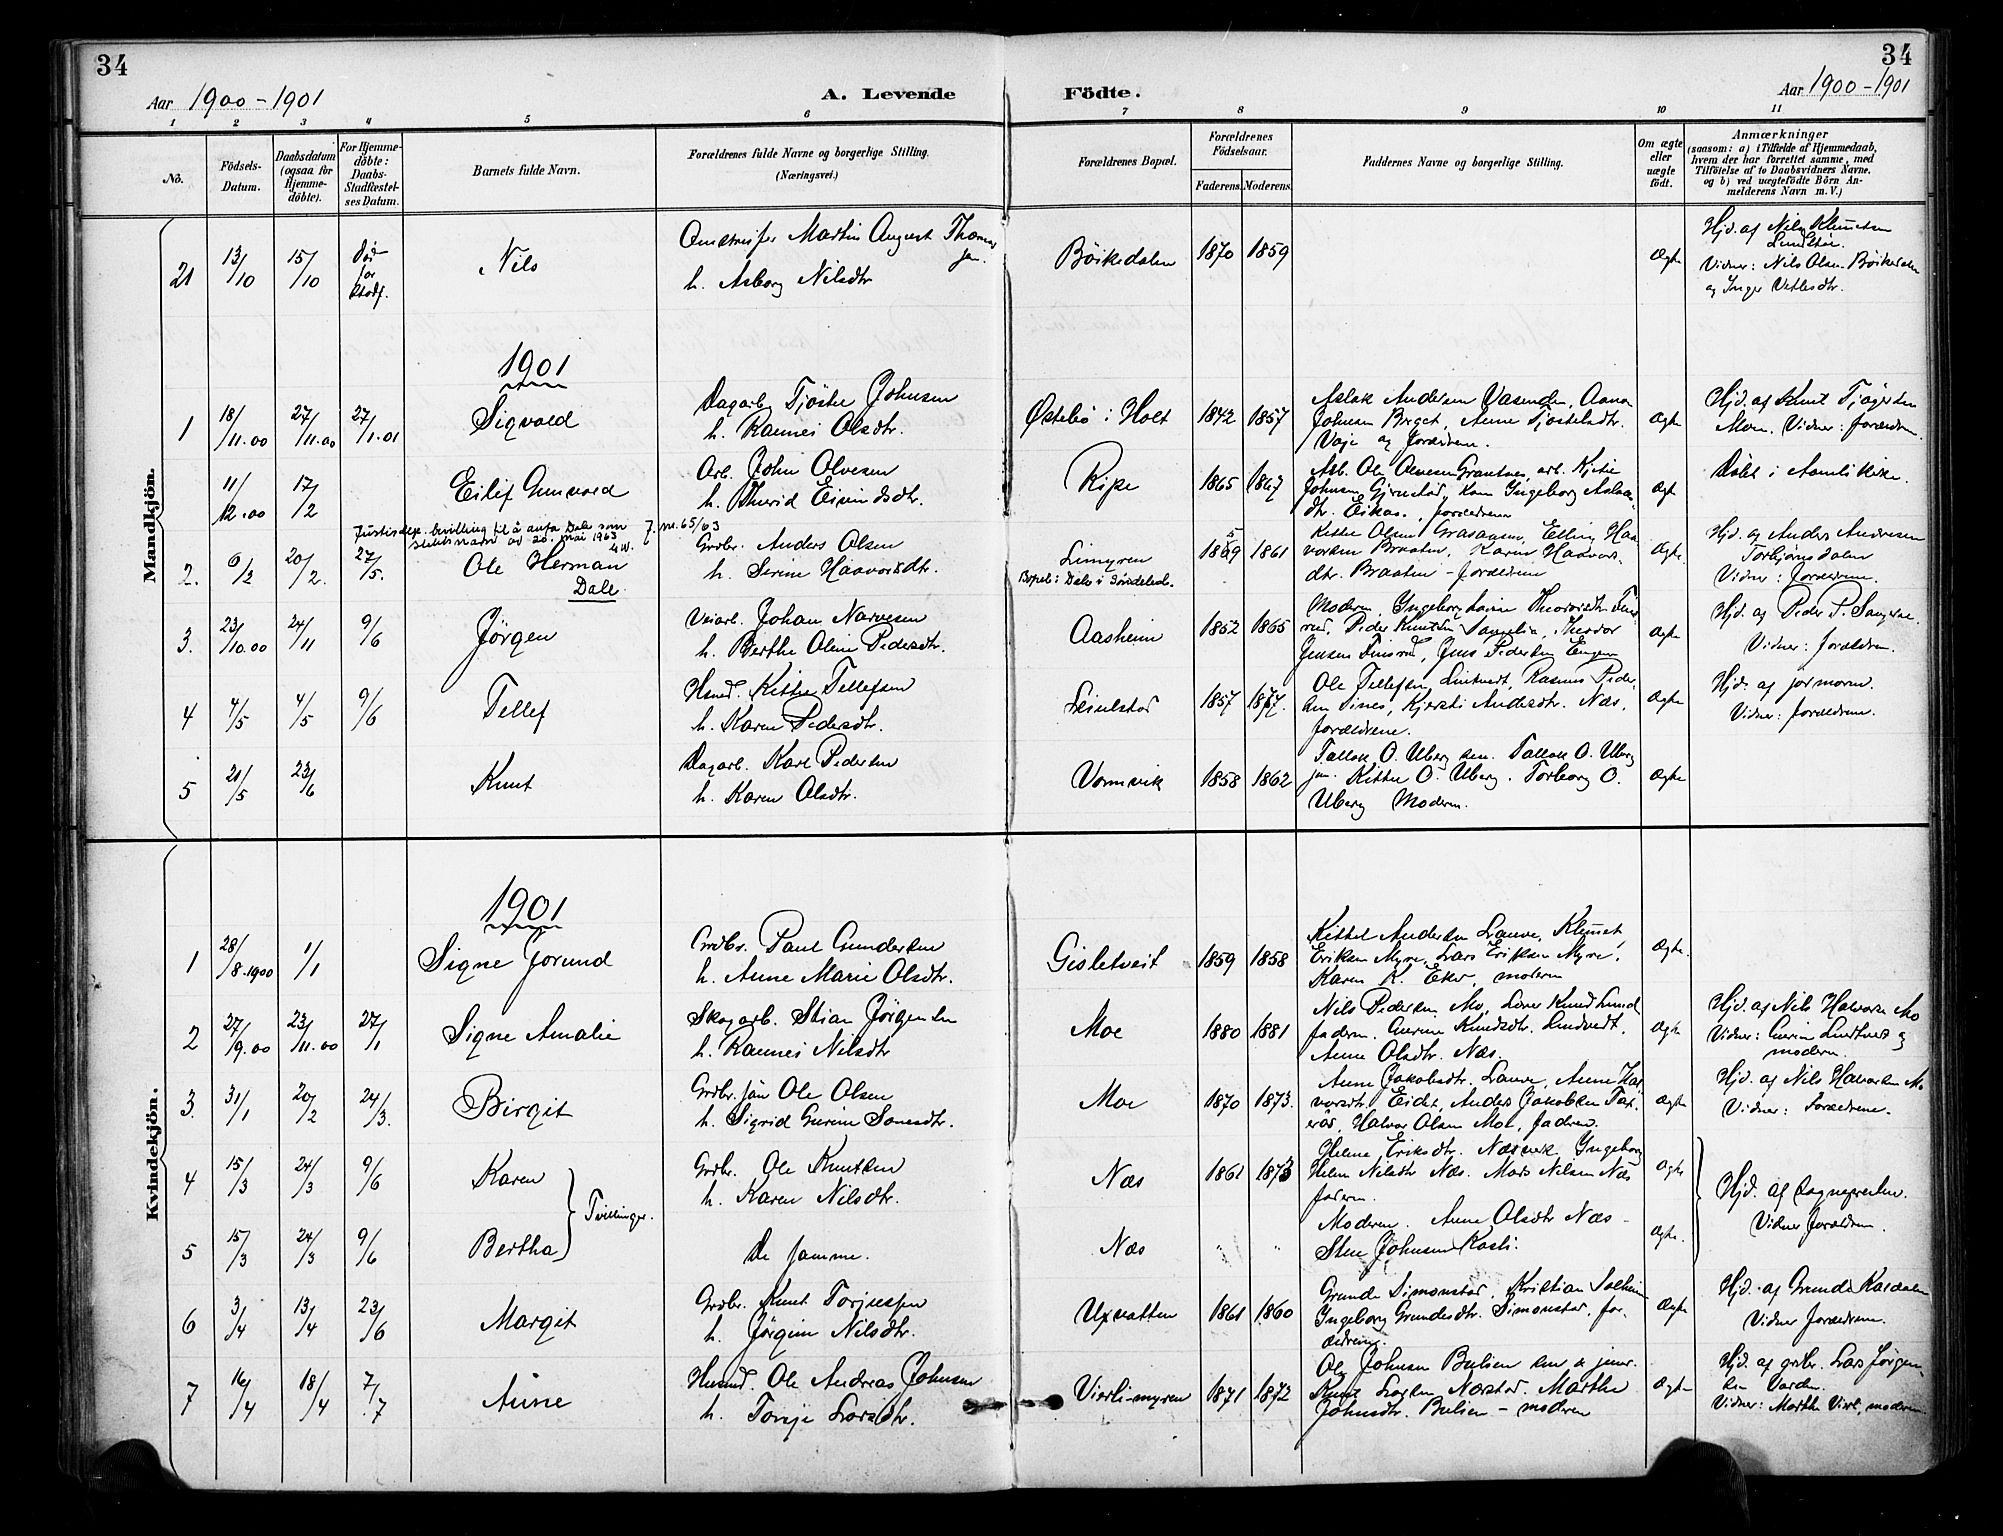 34
34
Aar 1900-1901
A. Levende Födte.
Aar 1900-1901
1 2 3 4 5 6 7 8 9 10 11
No.
Födsels-Datum.
Daabsdatum (ogsaa for Hjemme-döbte).
For Hjemme-döbte: Daabs-Stadfæstel-ses Datum.
Barnets fulde Navn.
Forældrenes fulde Navne og borgerlige Stilling. (Næringsvei.)
Forældrenes Bopæl.
Forældrenes Födselsaar.
Faderens. Moderens.
Faddernes Navne og borgerlige Stilling.
Om ægte eller uægte födt.
Anmærkninger
(saasom: a) i Tilfælde af Hjemmedaab,
hvem der har forrettet samme, med
Tilföielse af to Daabsvidners Navne,
og b) ved uægtefödte Börn An-
melderens Navn m. V.)
Mandkjön.
21 13/10 15/10 Død før stadf. Nils
Martin August Thomas
h. Asborg Nilsdtr
Böiksdalen 1870 1859 Ægte
Hjd. af Nils Klemetsen
Vidner: Nils Olsen Böiksdalen
og Inger Vetlesdtr.
1901
1 18/11.00 27/11.00 27/1.01 Sigvald
Dagarb. Tjöstel Johnsen
h. Rannei Olsdtr.
Østebö i Holt 1842 1857
Aslak Andersen Vasenden, Aanon
Johnsen Berget, Anne Tjöstelsdtr.
Vaje og Forældrene.
Ægte
Hjd. af Knut Tjögersen
Moen. Vidner: Forældrene.
11/12.00 17/2 Eilef Gunvald
Arb. John Olvesen
h. Thurid Eivindsdtr.
Ripe 1865 1867
Arb. Ole Olvesen Grantnes, arb. Kjetil
Johnsen Gjernstad, kone Ingeborg Aslaks-
dtr. Eikaas, forældrene
Ægte
Döbt i Aamli kirke.
Justisdep. bevilling til å anta Dale som J. nr. 65/63
slektsnavn av 20. mai 1963
2. 6/2 20/2. 27/5. Ole Herman
Dale
Grdbr. Anders Olsen
h. Serine Haavorsdtr.
Limyren
Bopæl: Dale i Söndeled.
1859 1861
Kittel Olsen Grasaasen, Elling Haa-
vorsen Braaten, Karen Haavors-
dtr. Braaten – Forældrene
Ægte.
Hjd. og Anders Andresen
Torbjörnsdalen
Vidner: Forældrene.
3. 23/10.00 24/11 9/6 Jörgen
Veiarb. Johan Narvesen
h. Berthe Oline Pedersdtr.
Aasheim 1852 1865
Moderen, Ingeborg
Peder Knutsen Songelia, Theodor
Jensen
Ægte
Hjd. og Peder P. Songene.
Vidner: Forældrene.
4 4/5 4/5 9/6 Tellef
Husmd. Kittel Tellefsen
h. Karen Pedersdtr.
Leiulstad 1857 1877.
Ole Tellefsen Lindtveit, Rasmus Peder-
sen Sines, Kjersti Andersdtr. Næs,
forældrene.
Ægte
Hjd. af jormoren.
Vidner: Forældrene.
5 21/5 23/6 Knut
Dagarb. Karl Pedersen
h. Karen Olsdtr.
Vormvik 1858 1862
Tallak O. Uberg sen. Tallak O. Uberg
jun. Kittel O. Uberg. Torborg O.
Uberg Moderen.
Ægte
Kvindekjön.
1901
1 28/8.1900 1/1 Signe Jorund
Grdbr. Paul Gundersen
h. Anne Marie Olsdtr.
Gisletveit 1859 1858
Kittel Andersen Lauve, Klemet
Eriksen Myre, Lars Eriksen Myre,
Karen K. Eker, moderen
Ægte.
2 27/9.00 23/11.00 27/1 Signe Amalie
Skogarb. Stian Jörgensen
h. Rannei Nilsdtr
Moe 1880 1881
Nils Pedersen Mo, Lars Knudsen
faderen. Gurine Knudsdtr. Lindtvedt.
Anne Olsdtr. Næs.
Ægte
Hjd. af Nils Halvorsen Mo
Vidner: Gurine Lindtveit og
moderen.
3. 31/1 20/2 24/3. Birgit
Grdbr. sön Ole Olsen
h. Sigrid Gurine Sonesdtr.
Moe 1870 1873.
Anne Jakobsdtr. Lauve, Anne Hal-
vorsdtr. Eidet, Anders Jakobsen Tax-
eraas, Halvor Olsen Moe, faderen.
Ægte
Hjd. af Nils Halvorsen Mo
Vidner: Forældrene.
4 15/3 24/3 9/6 Karen
Tvillinger.
Grdbr. Ole Knutsen
h. Karen Nilsdtr.
Næs 1861 1873
Helene Eriksdtr. Næsvik, Ingeborg
Helene Nilsdtr Næs. Mads Nilsen Næs
faderen.
Ægte
Hjd. af Sogneprestene.
Vidner Forældrene.
5 15/3 24/3 9/6 Bertha
De samme.
Næs " "
Moderen. Anne Olsdtr Næs –
Sten Johnsen Kasli.
Ægte.
6 3/4 13/4 23/6 Margit
Grdbr. Knut Torjussen
h. Jörgine Nilsdtr.
Uxvatten 1861 1860
Grunde Simonstad, Kristian Solheim
Ingeborg Grundesdtr. Simonstad, for-
ældrene.
Ægte
Hjd. af Grunde Kasdalen
Vidner Forældrene.
7 16/4 18/4 7/7 Anne
Husmd. Ole Andreas Johnsen
h. Torje Larsdtr.
Vierli-myren 1871 1872
Ole Johnsen Bulien sen & junr.
Knut Larsen Nærstad. Marthe
Johnsdtr. Bulien – moderen
Ægte
Hjd. af grbr. Lars Jörgen-
sen Varden.
Vidner: Marthe Vierli, moderen.